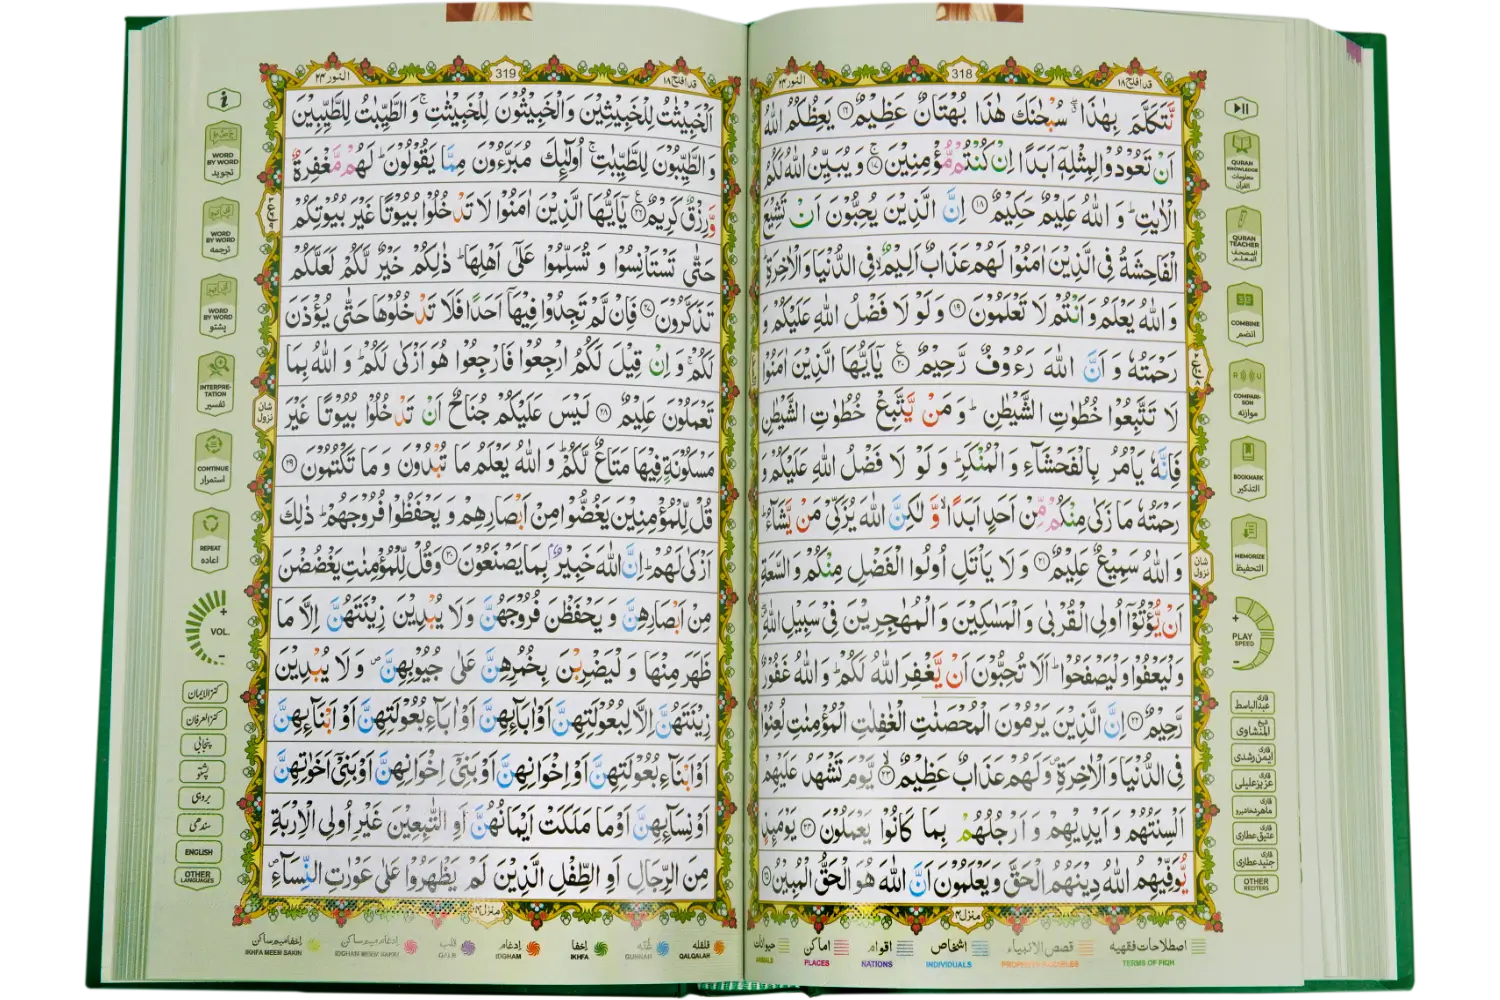 318
النور ٢٤
قد افلح ١٨
نَّتَكَلَّمَ بِهٰذَا ۖ سُبْحٰنَكَ هٰذَا بُهْتَانٌ عَظِيْمٌ ﴿١٦﴾ يَعِظُكُمُ اللّٰهُ
اَنْ تَعُوْدُوْا لِمِثْلِهٖٓ اَبَدًا اِنْ كُنْتُمْ مُّؤْمِنِيْنَ ﴿١٧﴾ وَ يُبَيِّنُ اللّٰهُ لَكُمُ
الْاٰيٰتِ ؕ وَ اللّٰهُ عَلِيْمٌ حَكِيْمٌ ﴿١٨﴾ اِنَّ الَّذِيْنَ يُحِبُّوْنَ اَنْ تَشِيْعَ
الْفَاحِشَةُ فِي الَّذِيْنَ اٰمَنُوْا لَهُمْ عَذَابٌ اَلِيْمٌ ۙ فِي الدُّنْيَا وَ الْاٰخِرَةِ ؕ
وَ اللّٰهُ يَعْلَمُ وَ اَنْتُمْ لَا تَعْلَمُوْنَ ﴿١٩﴾ وَ لَوْ لَا فَضْلُ اللّٰهِ عَلَيْكُمْ وَ
رَحْمَتُهٗ وَ اَنَّ اللّٰهَ رَءُوْفٌ رَّحِيْمٌ ﴿٢٠﴾ يٰۤاَيُّهَا الَّذِيْنَ اٰمَنُوْا
لَا تَتَّبِعُوْا خُطُوٰتِ الشَّيْطٰنِ ؕ وَ مَنْ يَّتَّبِعْ خُطُوٰتِ الشَّيْطٰنِ
فَاِنَّهٗ يَاْمُرُ بِالْفَحْشَآءِ وَ الْمُنْكَرِ ؕ وَ لَوْ لَا فَضْلُ اللّٰهِ عَلَيْكُمْ وَ
رَحْمَتُهٗ مَا زَكٰى مِنْكُمْ مِّنْ اَحَدٍ اَبَدًا ۙ وَّ لٰكِنَّ اللّٰهَ يُزَكِّيْ مَنْ يَّشَآءُ ؕ
وَ اللّٰهُ سَمِيْعٌ عَلِيْمٌ ﴿٢١﴾ وَ لَا يَاْتَلِ اُولُوا الْفَضْلِ مِنْكُمْ وَ السَّعَةِ
اَنْ يُّؤْتُوْۤا اُولِي الْقُرْبٰى وَ الْمَسٰكِيْنَ وَ الْمُهٰجِرِيْنَ فِيْ سَبِيْلِ اللّٰهِ ۖ
وَ لْيَعْفُوْا وَ لْيَصْفَحُوْا ؕ اَلَا تُحِبُّوْنَ اَنْ يَّغْفِرَ اللّٰهُ لَكُمْ ؕ وَ اللّٰهُ غَفُوْرٌ
رَّحِيْمٌ ﴿٢٢﴾ اِنَّ الَّذِيْنَ يَرْمُوْنَ الْمُحْصَنٰتِ الْغٰفِلٰتِ الْمُؤْمِنٰتِ لُعِنُوْا
فِي الدُّنْيَا وَ الْاٰخِرَةِ ۪ وَ لَهُمْ عَذَابٌ عَظِيْمٌ ﴿٢٣﴾ يَّوْمَ تَشْهَدُ عَلَيْهِمْ
اَلْسِنَتُهُمْ وَ اَيْدِيْهِمْ وَ اَرْجُلُهُمْ بِمَا كَانُوْا يَعْمَلُوْنَ ﴿٢٤﴾ يَوْمَىِٕذٍ
يُّوَفِّيْهِمُ اللّٰهُ دِيْنَهُمُ الْحَقَّ وَ يَعْلَمُوْنَ اَنَّ اللّٰهَ هُوَ الْحَقُّ الْمُبِيْنُ ﴿٢٥﴾
شان نزول
منزل ٤
QURAN KNOWLEDGE
معلومات القرآن
QURAN TEACHER
المصحف المعلم
COMBINE
انضم
R U
COMPARISON
موازنه
BOOKMARK
التذكير
MEMORIZE
التحفيظ
+
PLAY SPEED
-
قاری عبدالباسط
شیخ المنشاوی
قاری ایمن رشدی
قاری عزیز علیلی
قاری عتیق عطاری
قاری جنید عطاری
OTHER RECITERS
اصطلاحات فقهيه
TERMS OF FIQH
قصص الانبياء
اشخاص
INDIVIDUALS
اقوام
NATIONS
اماكن
PLACES
حيوانات
ANIMALS
319
النور ٢٤
قد افلح ١٨
اَلْخَبِيْثٰتُ لِلْخَبِيْثِيْنَ وَ الْخَبِيْثُوْنَ لِلْخَبِيْثٰتِ ۚ وَ الطَّيِّبٰتُ لِلطَّيِّبِيْنَ
وَ الطَّيِّبُوْنَ لِلطَّيِّبٰتِ ۚ اُولٰٓىِٕكَ مُبَرَّءُوْنَ مِمَّا يَقُوْلُوْنَ ؕ لَهُمْ مَّغْفِرَةٌ
وَّ رِزْقٌ كَرِيْمٌ ﴿٢٦﴾ يٰۤاَيُّهَا الَّذِيْنَ اٰمَنُوْا لَا تَدْخُلُوْا بُيُوْتًا غَيْرَ بُيُوْتِكُمْ
حَتّٰى تَسْتَاْنِسُوْا وَ تُسَلِّمُوْا عَلٰۤى اَهْلِهَا ؕ ذٰلِكُمْ خَيْرٌ لَّكُمْ لَعَلَّكُمْ
تَذَكَّرُوْنَ ﴿٢٧﴾ فَاِنْ لَّمْ تَجِدُوْا فِيْهَاۤ اَحَدًا فَلَا تَدْخُلُوْهَا حَتّٰى يُؤْذَنَ
لَكُمْ ۚ وَ اِنْ قِيْلَ لَكُمُ ارْجِعُوْا فَارْجِعُوْا هُوَ اَزْكٰى لَكُمْ ؕ وَ اللّٰهُ بِمَا
تَعْمَلُوْنَ عَلِيْمٌ ﴿٢٨﴾ لَيْسَ عَلَيْكُمْ جُنَاحٌ اَنْ تَدْخُلُوْا بُيُوْتًا غَيْرَ
مَسْكُوْنَةٍ فِيْهَا مَتَاعٌ لَّكُمْ ؕ وَ اللّٰهُ يَعْلَمُ مَا تُبْدُوْنَ وَ مَا تَكْتُمُوْنَ ﴿٢٩﴾
قُلْ لِّلْمُؤْمِنِيْنَ يَغُضُّوْا مِنْ اَبْصَارِهِمْ وَ يَحْفَظُوْا فُرُوْجَهُمْ ؕ ذٰلِكَ
اَزْكٰى لَهُمْ ؕ اِنَّ اللّٰهَ خَبِيْرٌۢ بِمَا يَصْنَعُوْنَ ﴿٣٠﴾ وَ قُلْ لِّلْمُؤْمِنٰتِ يَغْضُضْنَ
مِنْ اَبْصَارِهِنَّ وَ يَحْفَظْنَ فُرُوْجَهُنَّ وَ لَا يُبْدِيْنَ زِيْنَتَهُنَّ اِلَّا مَا
ظَهَرَ مِنْهَا وَ لْيَضْرِبْنَ بِخُمُرِهِنَّ عَلٰى جُيُوْبِهِنَّ ۪ وَ لَا يُبْدِيْنَ
زِيْنَتَهُنَّ اِلَّا لِبُعُوْلَتِهِنَّ اَوْ اٰبَآىِٕهِنَّ اَوْ اٰبَآءِ بُعُوْلَتِهِنَّ اَوْ اَبْنَآىِٕهِنَّ
اَوْ اَبْنَآءِ بُعُوْلَتِهِنَّ اَوْ اِخْوَانِهِنَّ اَوْ بَنِيْۤ اِخْوَانِهِنَّ اَوْ بَنِيْۤ اَخَوٰتِهِنَّ
اَوْ نِسَآىِٕهِنَّ اَوْ مَا مَلَكَتْ اَيْمَانُهُنَّ اَوِ التّٰبِعِيْنَ غَيْرِ اُولِي الْاِرْبَةِ
مِنَ الرِّجَالِ اَوِ الطِّفْلِ الَّذِيْنَ لَمْ يَظْهَرُوْا عَلٰى عَوْرٰتِ النِّسَآءِ ۪
شان نزول
منزل ٤
i
WORD BY WORD
تجويد
WORD BY WORD
ترجمه
WORD BY WORD
پشتو
INTERPRETATION
تفسير
CONTINUE
استمرار
REPEAT
اعاده
+
VOL.
-
كنزالایمان
كنزالعرفان
پنجابی
پشتو
بروہی
سندھی
ENGLISH
OTHER LANGUAGES
قلقله
QALQALAH
غنّه
GUNNAH
اخفا
IKHFA
ادغام
IDGHAM
قلب
QALB
ادغام ميم ساكن
IDGHAM MEEM SAKIN
اخفا ميم ساكن
IKHFA MEEM SAKIN